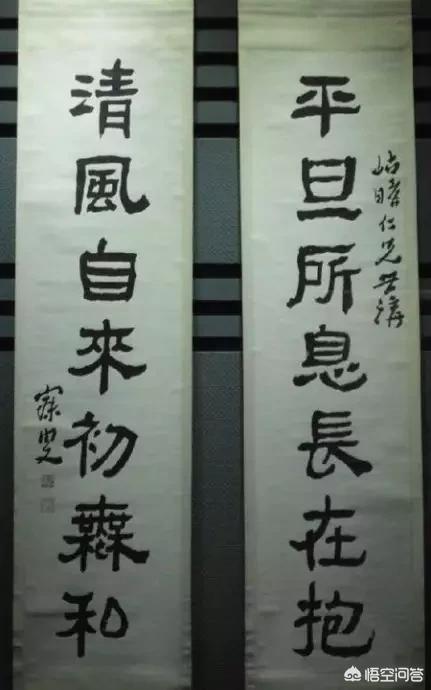 仁兄
平旦所息長在抱
清風自來初無和
寐叟
悟空问答